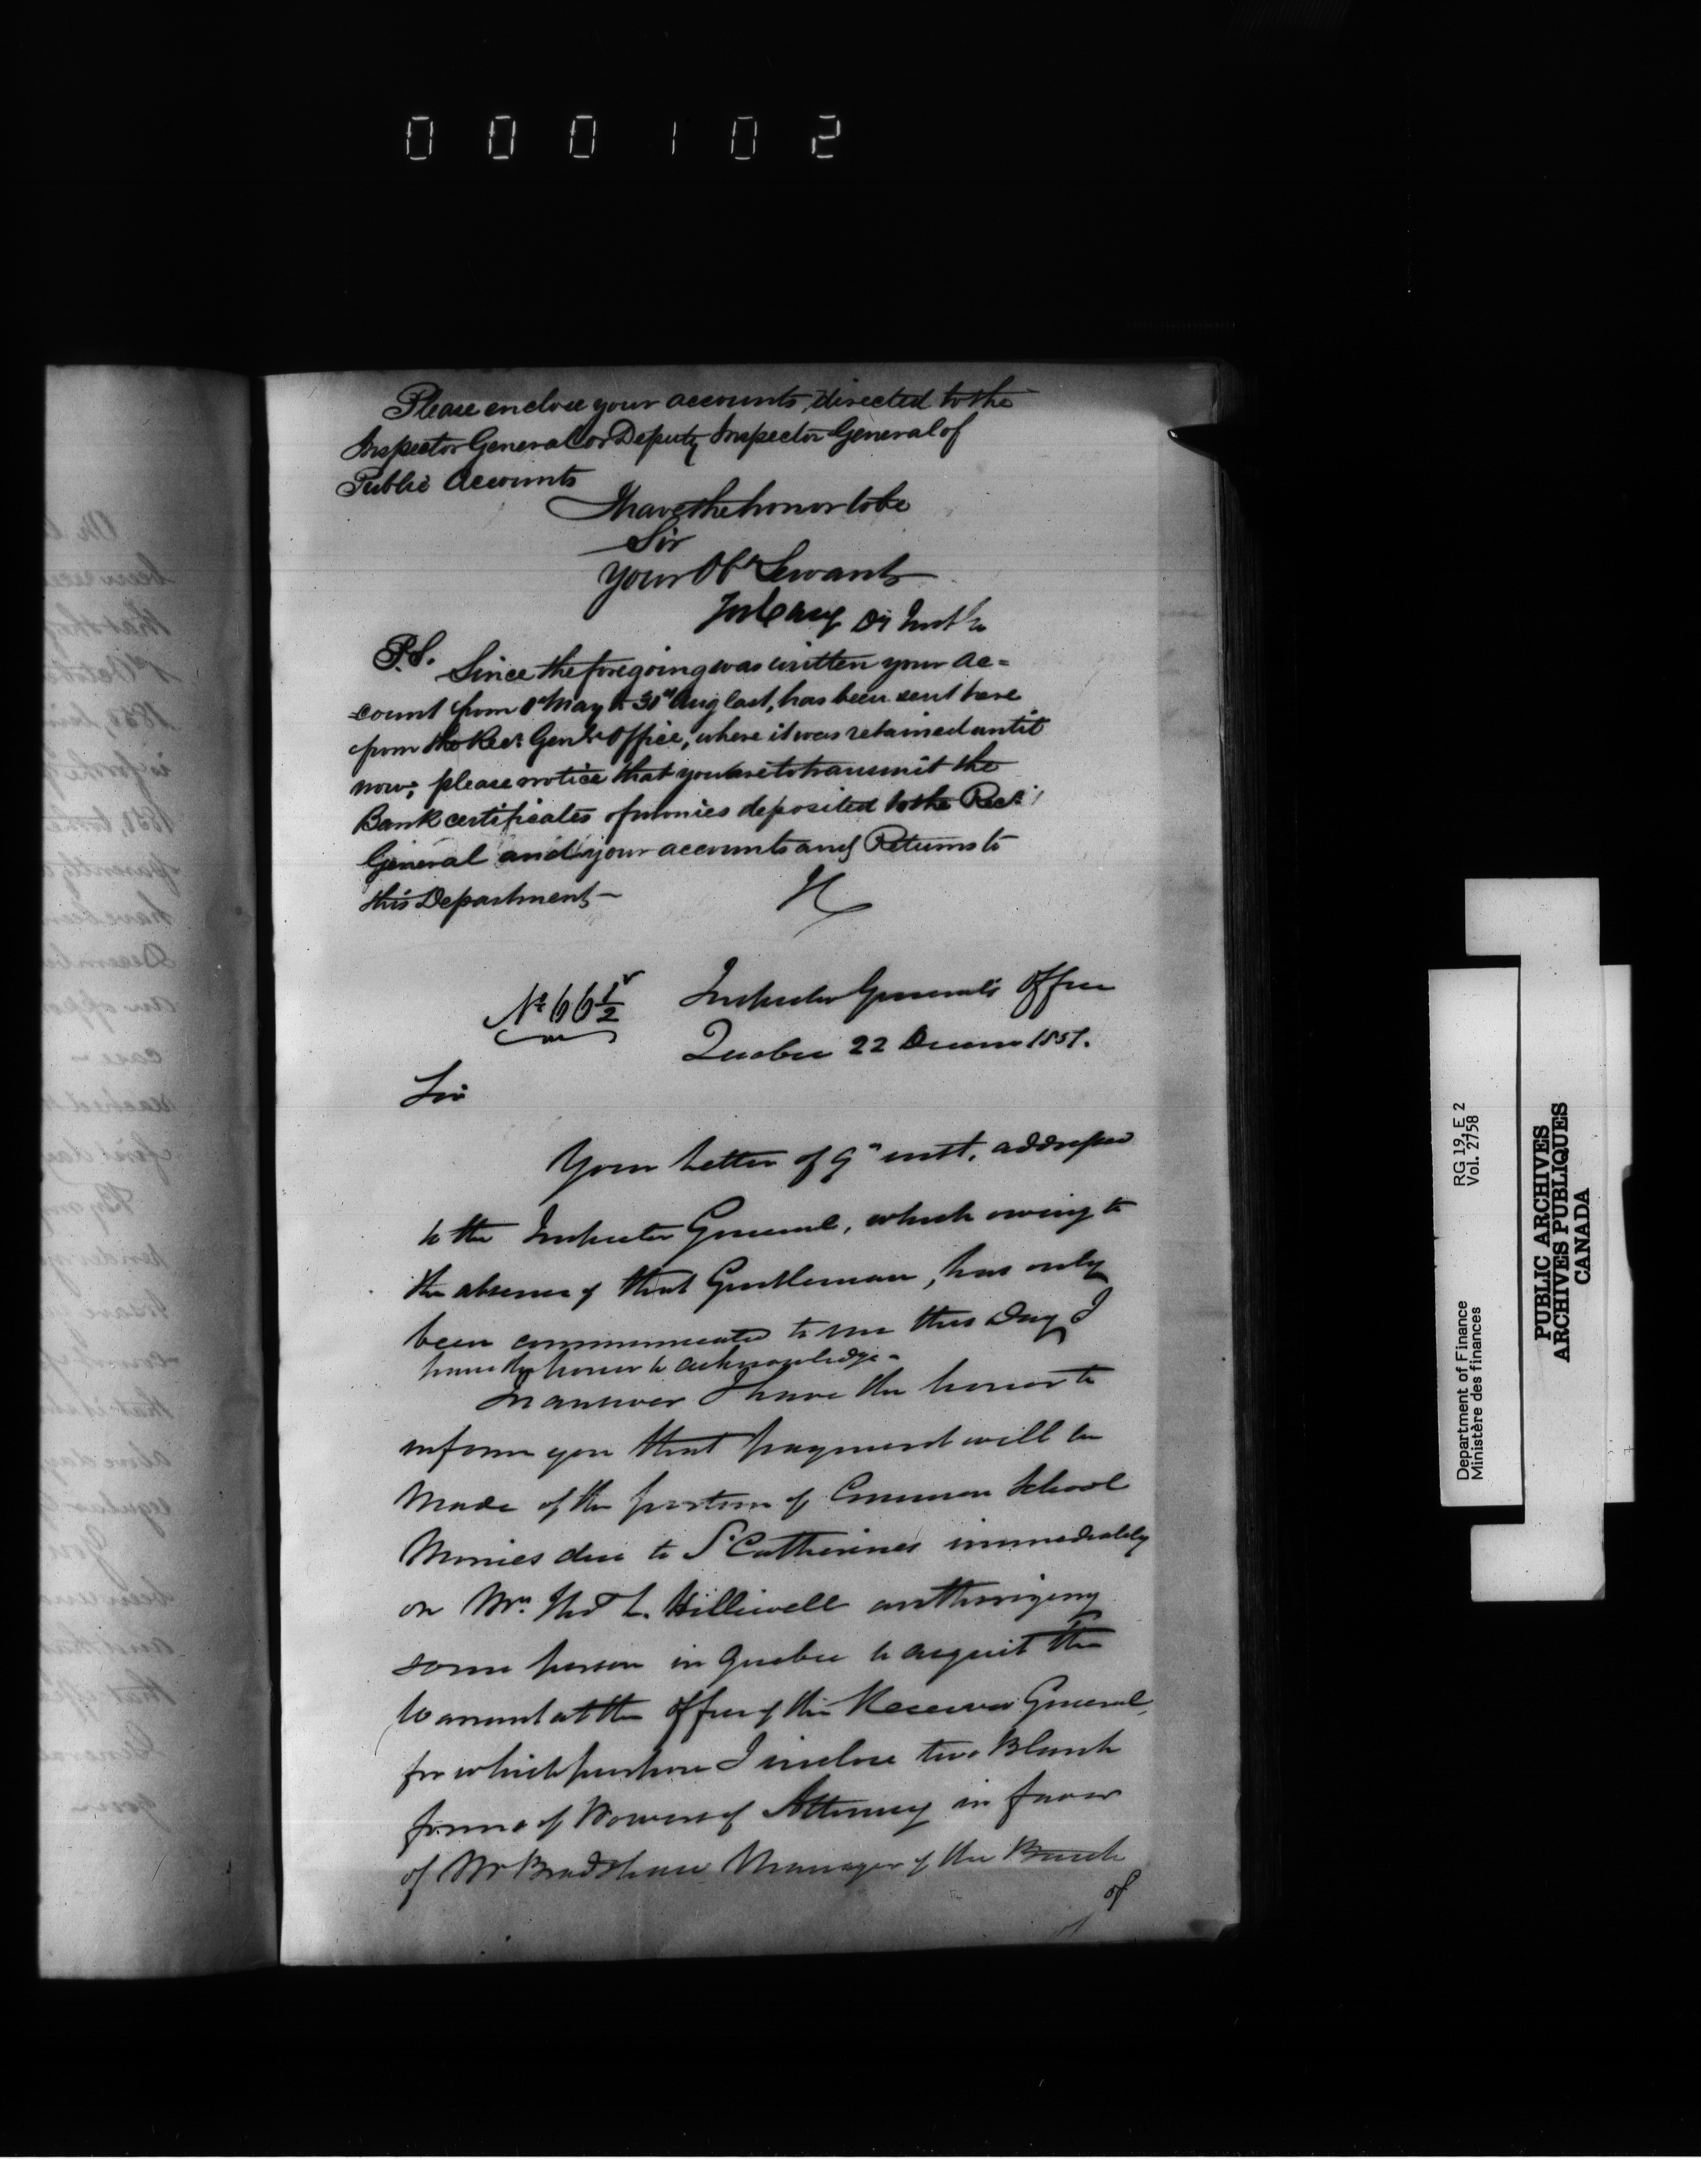 000102
Please enclose your accounts, directed to the
Inspector General or Deputy Inspector General of
Public Accounts
I have the honor to be
Sir
Your Obt Servant
Jos Cary Dy
P.S. Since the foregoing was written your ac=
=count from 1st May to 31st Aug last, has been sent here
from the Recr Genls Office, where it was retained until
now; please notice that you are to transmit the
Bank certificates of monies deposited to the Recr
General and your accounts and Returns to
this Department—
No 66 1/2
Inspector General's Office
Quebec 22 Decem 1851.
Sir
Your letter of 9th inst. addressed
to the Inspector General, which owing to
the absence of that Gentleman, has only
been communicated to me this Day I
have the honor to acknowledge-
In answer I have the honor to
inform you that payment will be
made of the portion of Common School
Monies due to St Catherines immediately
on Mr. Thos L. Helliwell authorizing
some person in Quebec to acquit the
Warrant at the Office of the Receiver General,
for which purpose I inclose two Blank
forms of Powers of Attorney in favor
of Mr Bradshaw Manager of the Bank
of
RG 19, E 2
Vol. 2758
Department of Finance
Ministère des finances
PUBLIC ARCHIVES
ARCHIVES PUBLIQUES
CANADA